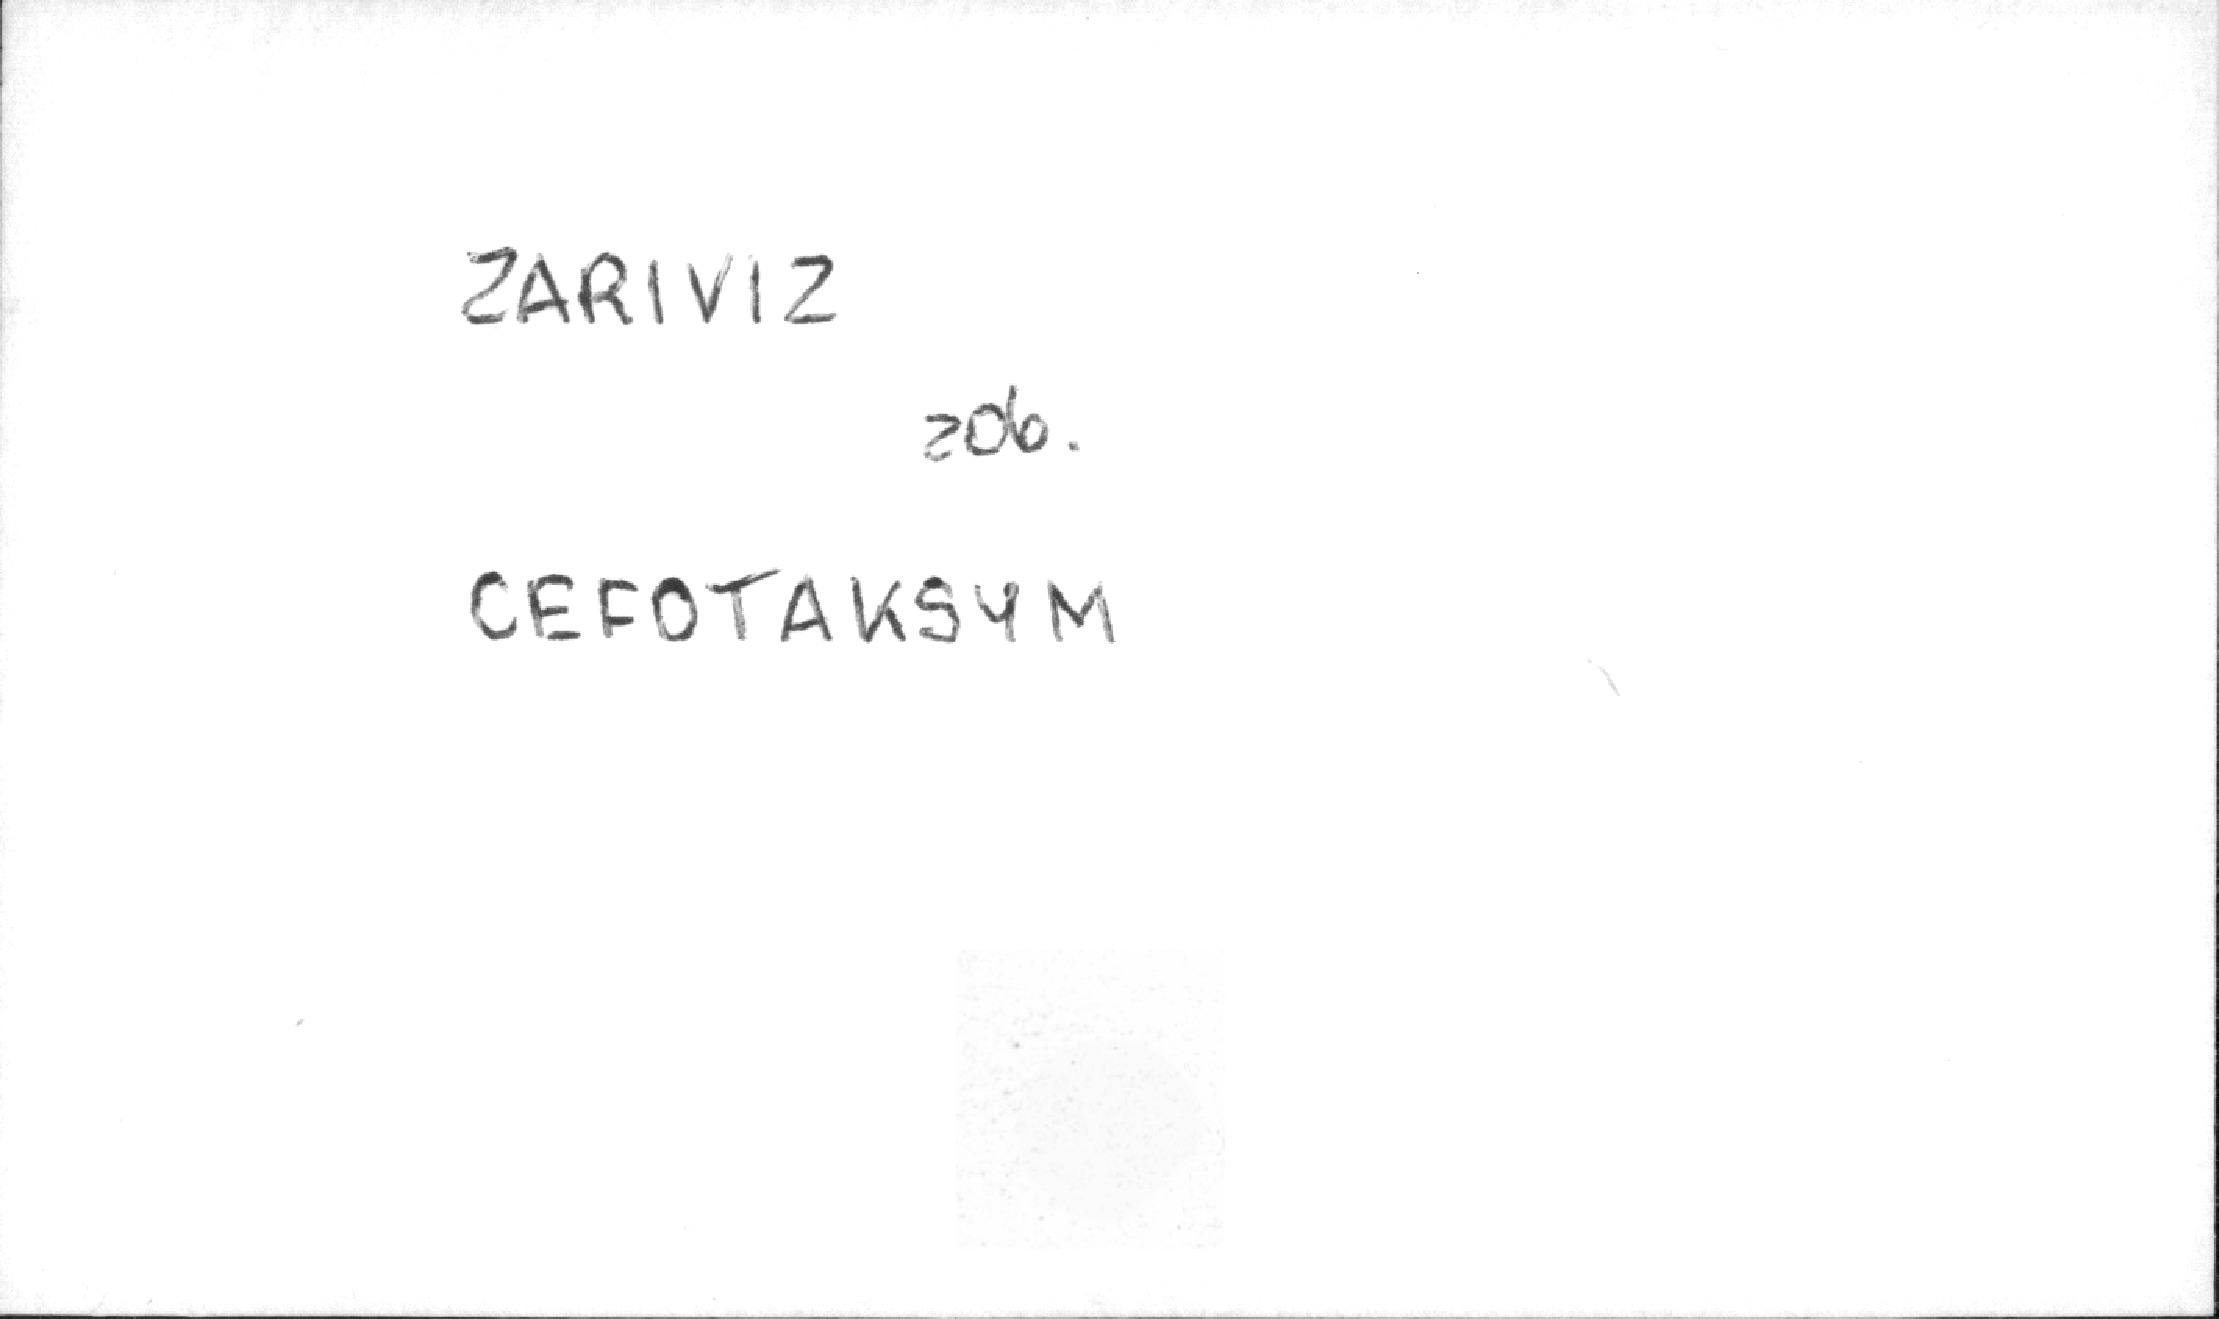 ZARIVIZ
zob.
CEFOTAKSYM